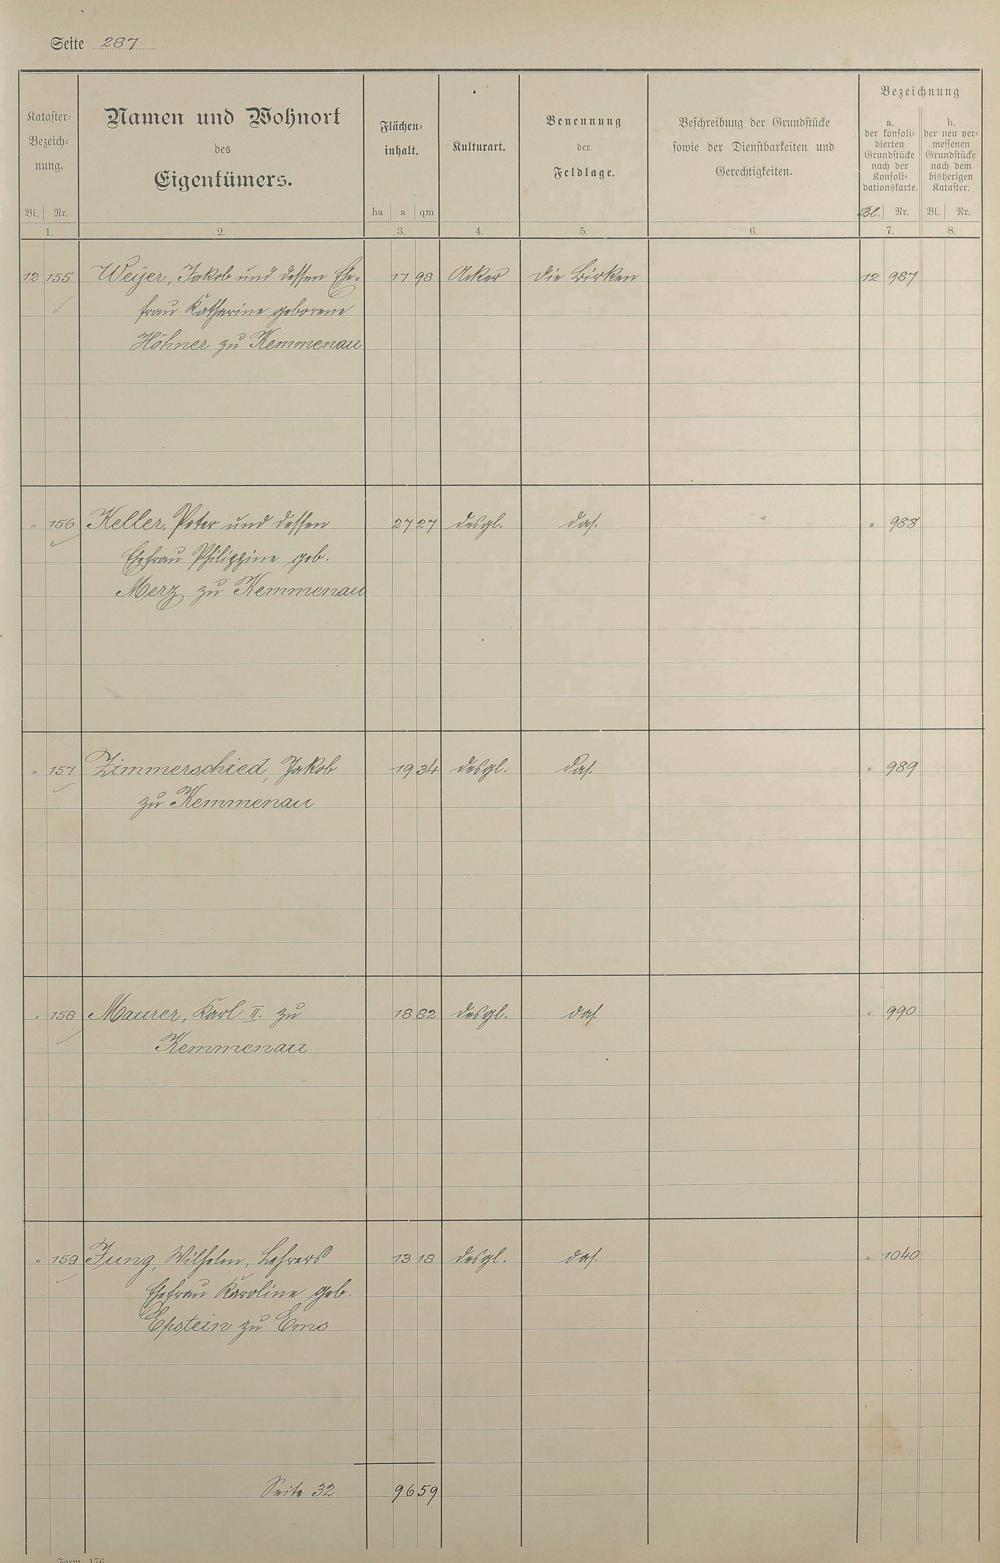 Seite 287
Kataster-
Bezeich-
nung.
Bl. Nr.
1.
Namen und Wohnort
des
Eigentümers.
2.
Flächen-
inhalt.
ha a qm
3.
Kulturart.
4.
Benennung
der
Feldlage.
5.
Beschreibung der Grundstücke
sowie der Dienstbarkeiten und
Gerechtigkeiten.
6.
Bezeichnung
a.
der konsoli-
dierten
Grundstücke
nach der
Konsoli-
dationskarte.
Bl. Nr.
7.
b.
der neu ver-
messenen
Grundstücke
nach dem
bisherigen
Kataster.
Bl. Nr.
8.
12 155 Weyer, Jakob und dessen Ehe- 17 98 Acker die Birken 12 987
frau Katharine geborene
Höhner zu Kemmenau
" 156 Keller, Peter und dessen 27 27 desgl. das. " 988
Ehefrau Philippine geb.
Merz zu Kemmenau
" 157 Zimmerschied, Jakob 19 34 desgl. das. " 989
zu Kemmenau
" 158 Maurer, Karl II. zu 18 82 desgl. das. " 990
Kemmenau
" 159 Jung, Wilhelm, Lehrers 13 18 desgl. das. " 1040
Ehefrau Karoline geb.
Epstein zu Ems
Seite 32 96 59
Form. 176